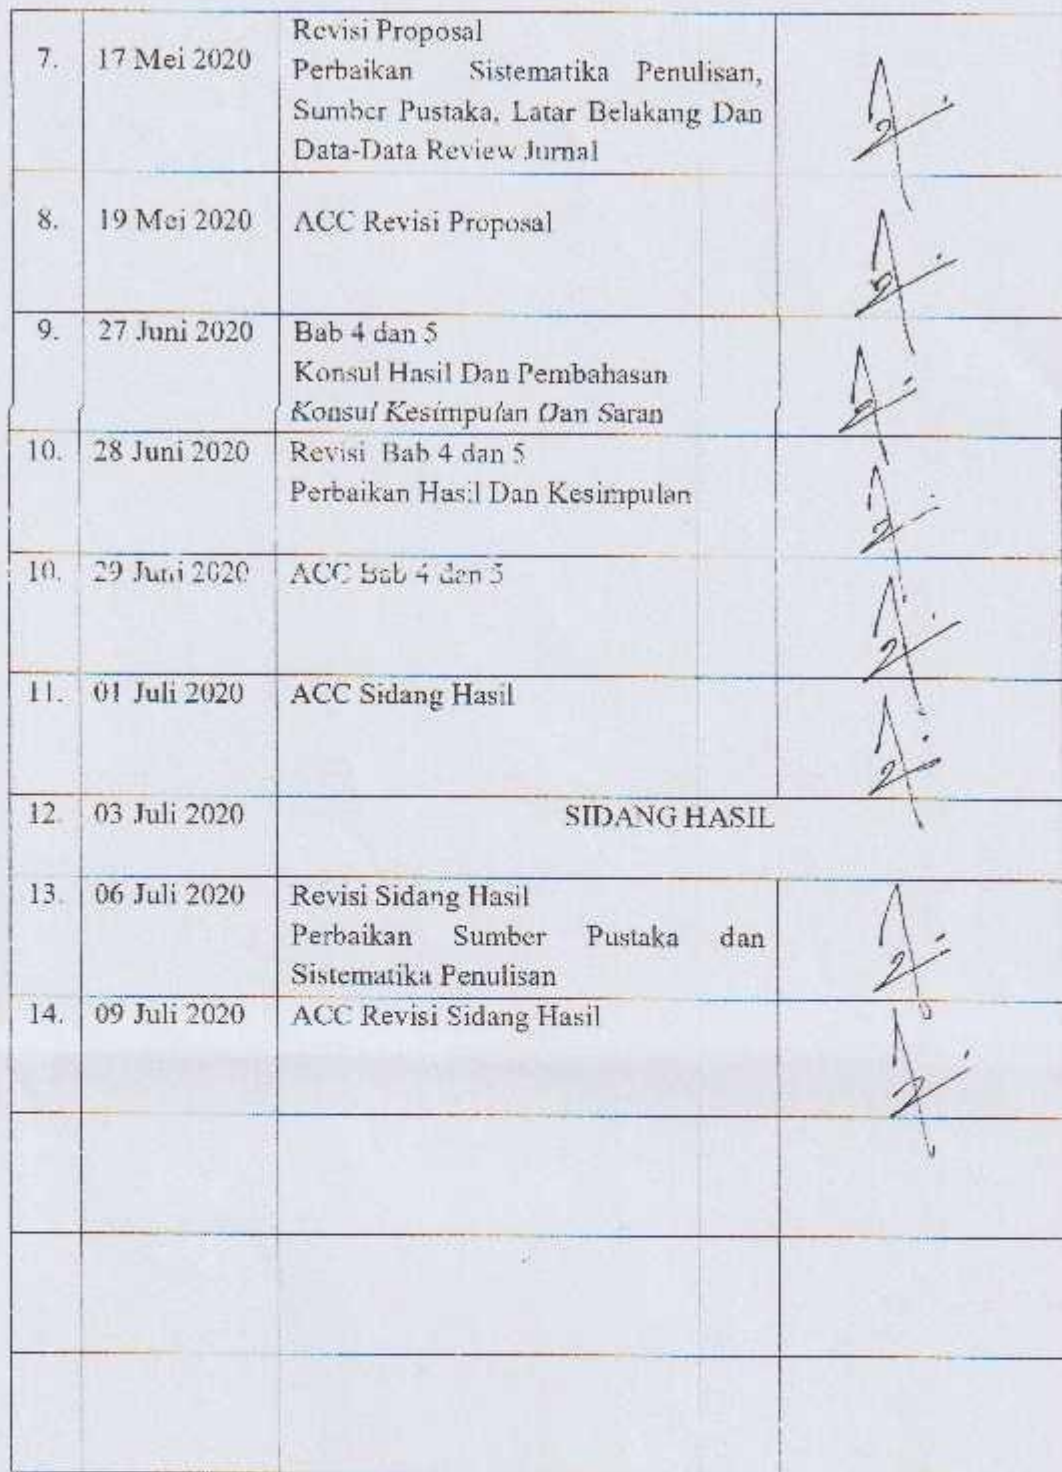 7. 17 Mei 2020 Revisi Proposal
Perbaikan Sistematika Penulisan,
Sumber Pustaka, Latar Belakang Dan
Data-Data Review Jurnal
8. 19 Mei 2020 ACC Revisi Proposal
9. 27 Juni 2020 Bab 4 dan 5
Konsul Hasil Dan Pembahasan
Konsul Kesimpulan Dan Saran
10. 28 Juni 2020 Revisi Bab 4 dan 5
Perbaikan Hasil Dan Kesimpulan
10. 29 Juni 2020 ACC Bab 4 dan 5
11. 01 Juli 2020 ACC Sidang Hasil
12. 03 Juli 2020 SIDANG HASIL
13. 06 Juli 2020 Revisi Sidang Hasil
Perbaikan Sumber Pustaka dan
Sistematika Penulisan
14. 09 Juli 2020 ACC Revisi Sidang Hasil